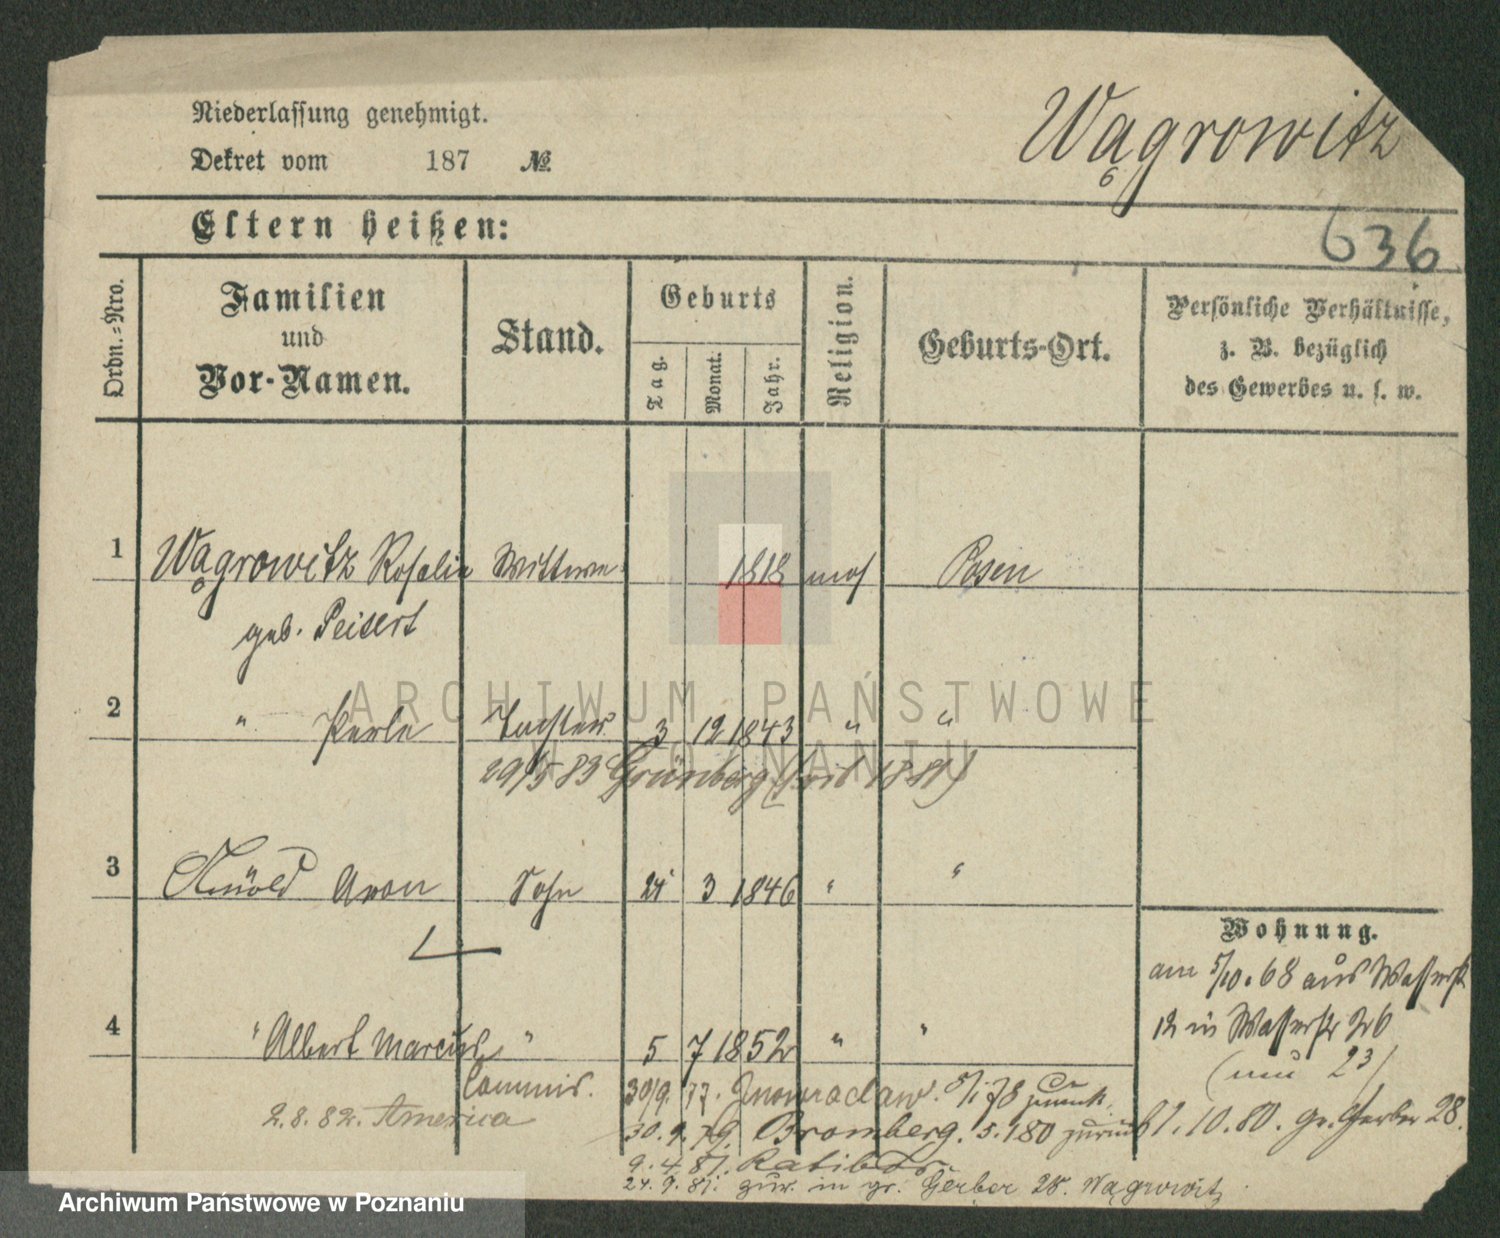 Niederlassung genehmigt.
Dekret vom 187 №
Wągrowitz
Eltern heißen:
636
Ordn.-Nro.
Familien
und
Vor-Namen.
Stand.
Geburts
Tag.
Monat.
Jahr.
Religion.
Geburts-Ort.
Persönliche Verhältnisse,
z. B. bezüglich
des Gewerbes u. s. w.
1 Wągrowitz Rosalie Wittwe 1818 mos Posen
geb. Peisert
2 " Perle Tochter 3 12 1843 " "
29/5 83 Grünberg (seit 1881)
3 Aron Sohn 24 3 1846 " "
Wohnung.
am 5/10. 68 aus Wasserstr
12 in Wasserstr 26
(neu 23)
4 " Albert Marcus " 5 7 1852 " "
Commis. 30/9. 77. Inowraclaw. 5/1 78 zurück.
2.8.82. America
30.9.79. Bromberg. 5.1 80 zurück
1.10.80. gr. Gerber 28.
9.4.81. Ratibor.
24.9.81. zur. in gr. Gerber 28. Wągrowitz
ARCHIWUM PAŃSTWOWE
W POZNANIU
Archiwum Państwowe w Poznaniu